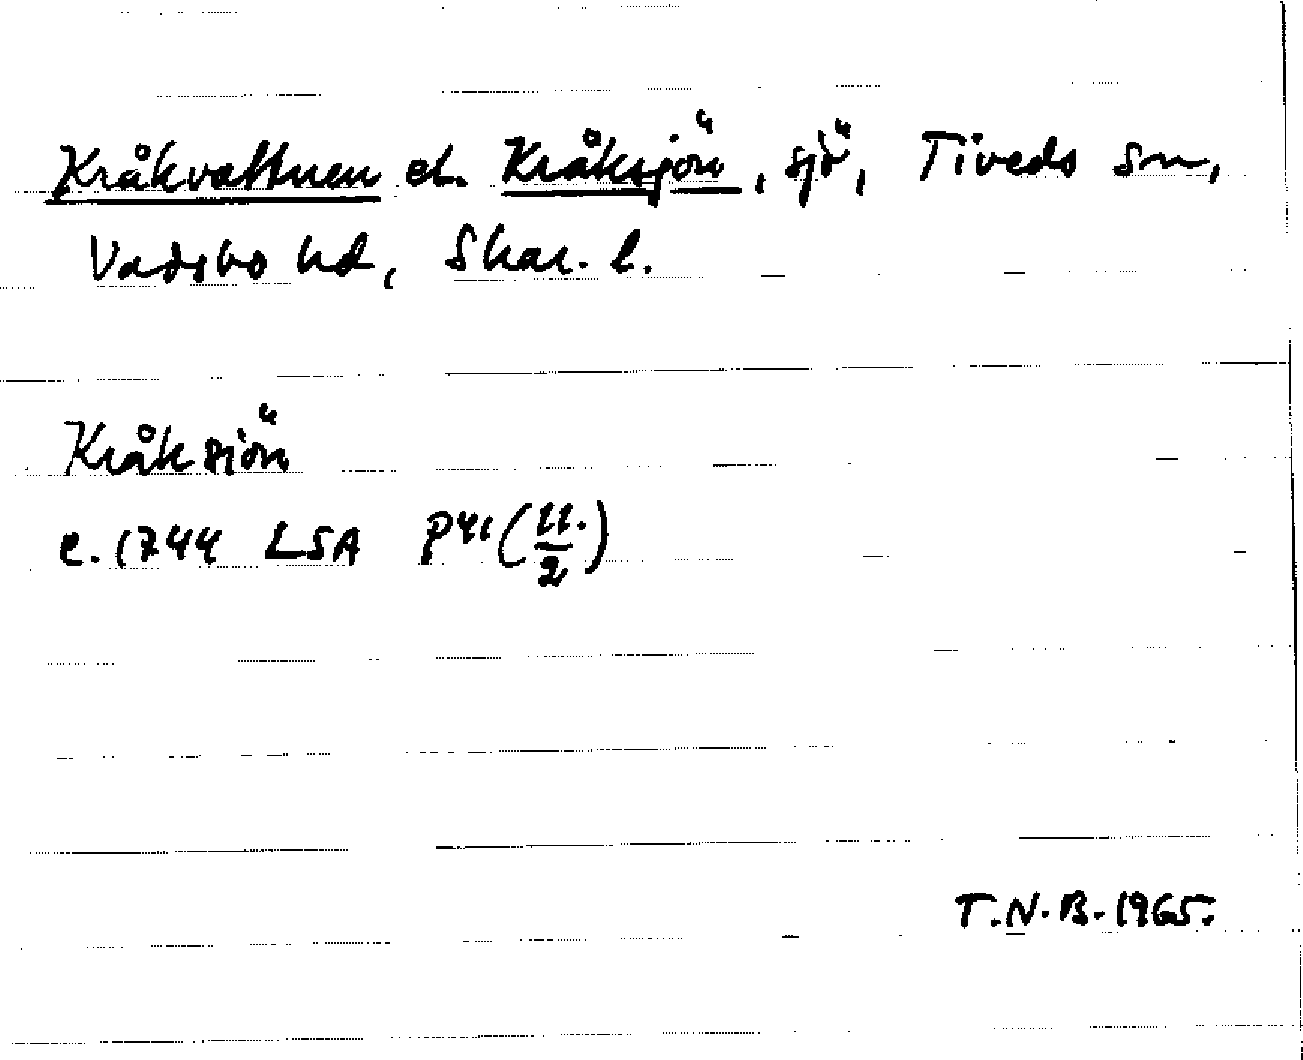 Kråkvattnen el. Kråksjön, sjö, Tiveds sn,
Vadsbo hd, Skar. l.
Kråksiön
c. 1744 LSA P41 (11./2)
T.N.B. 1965.